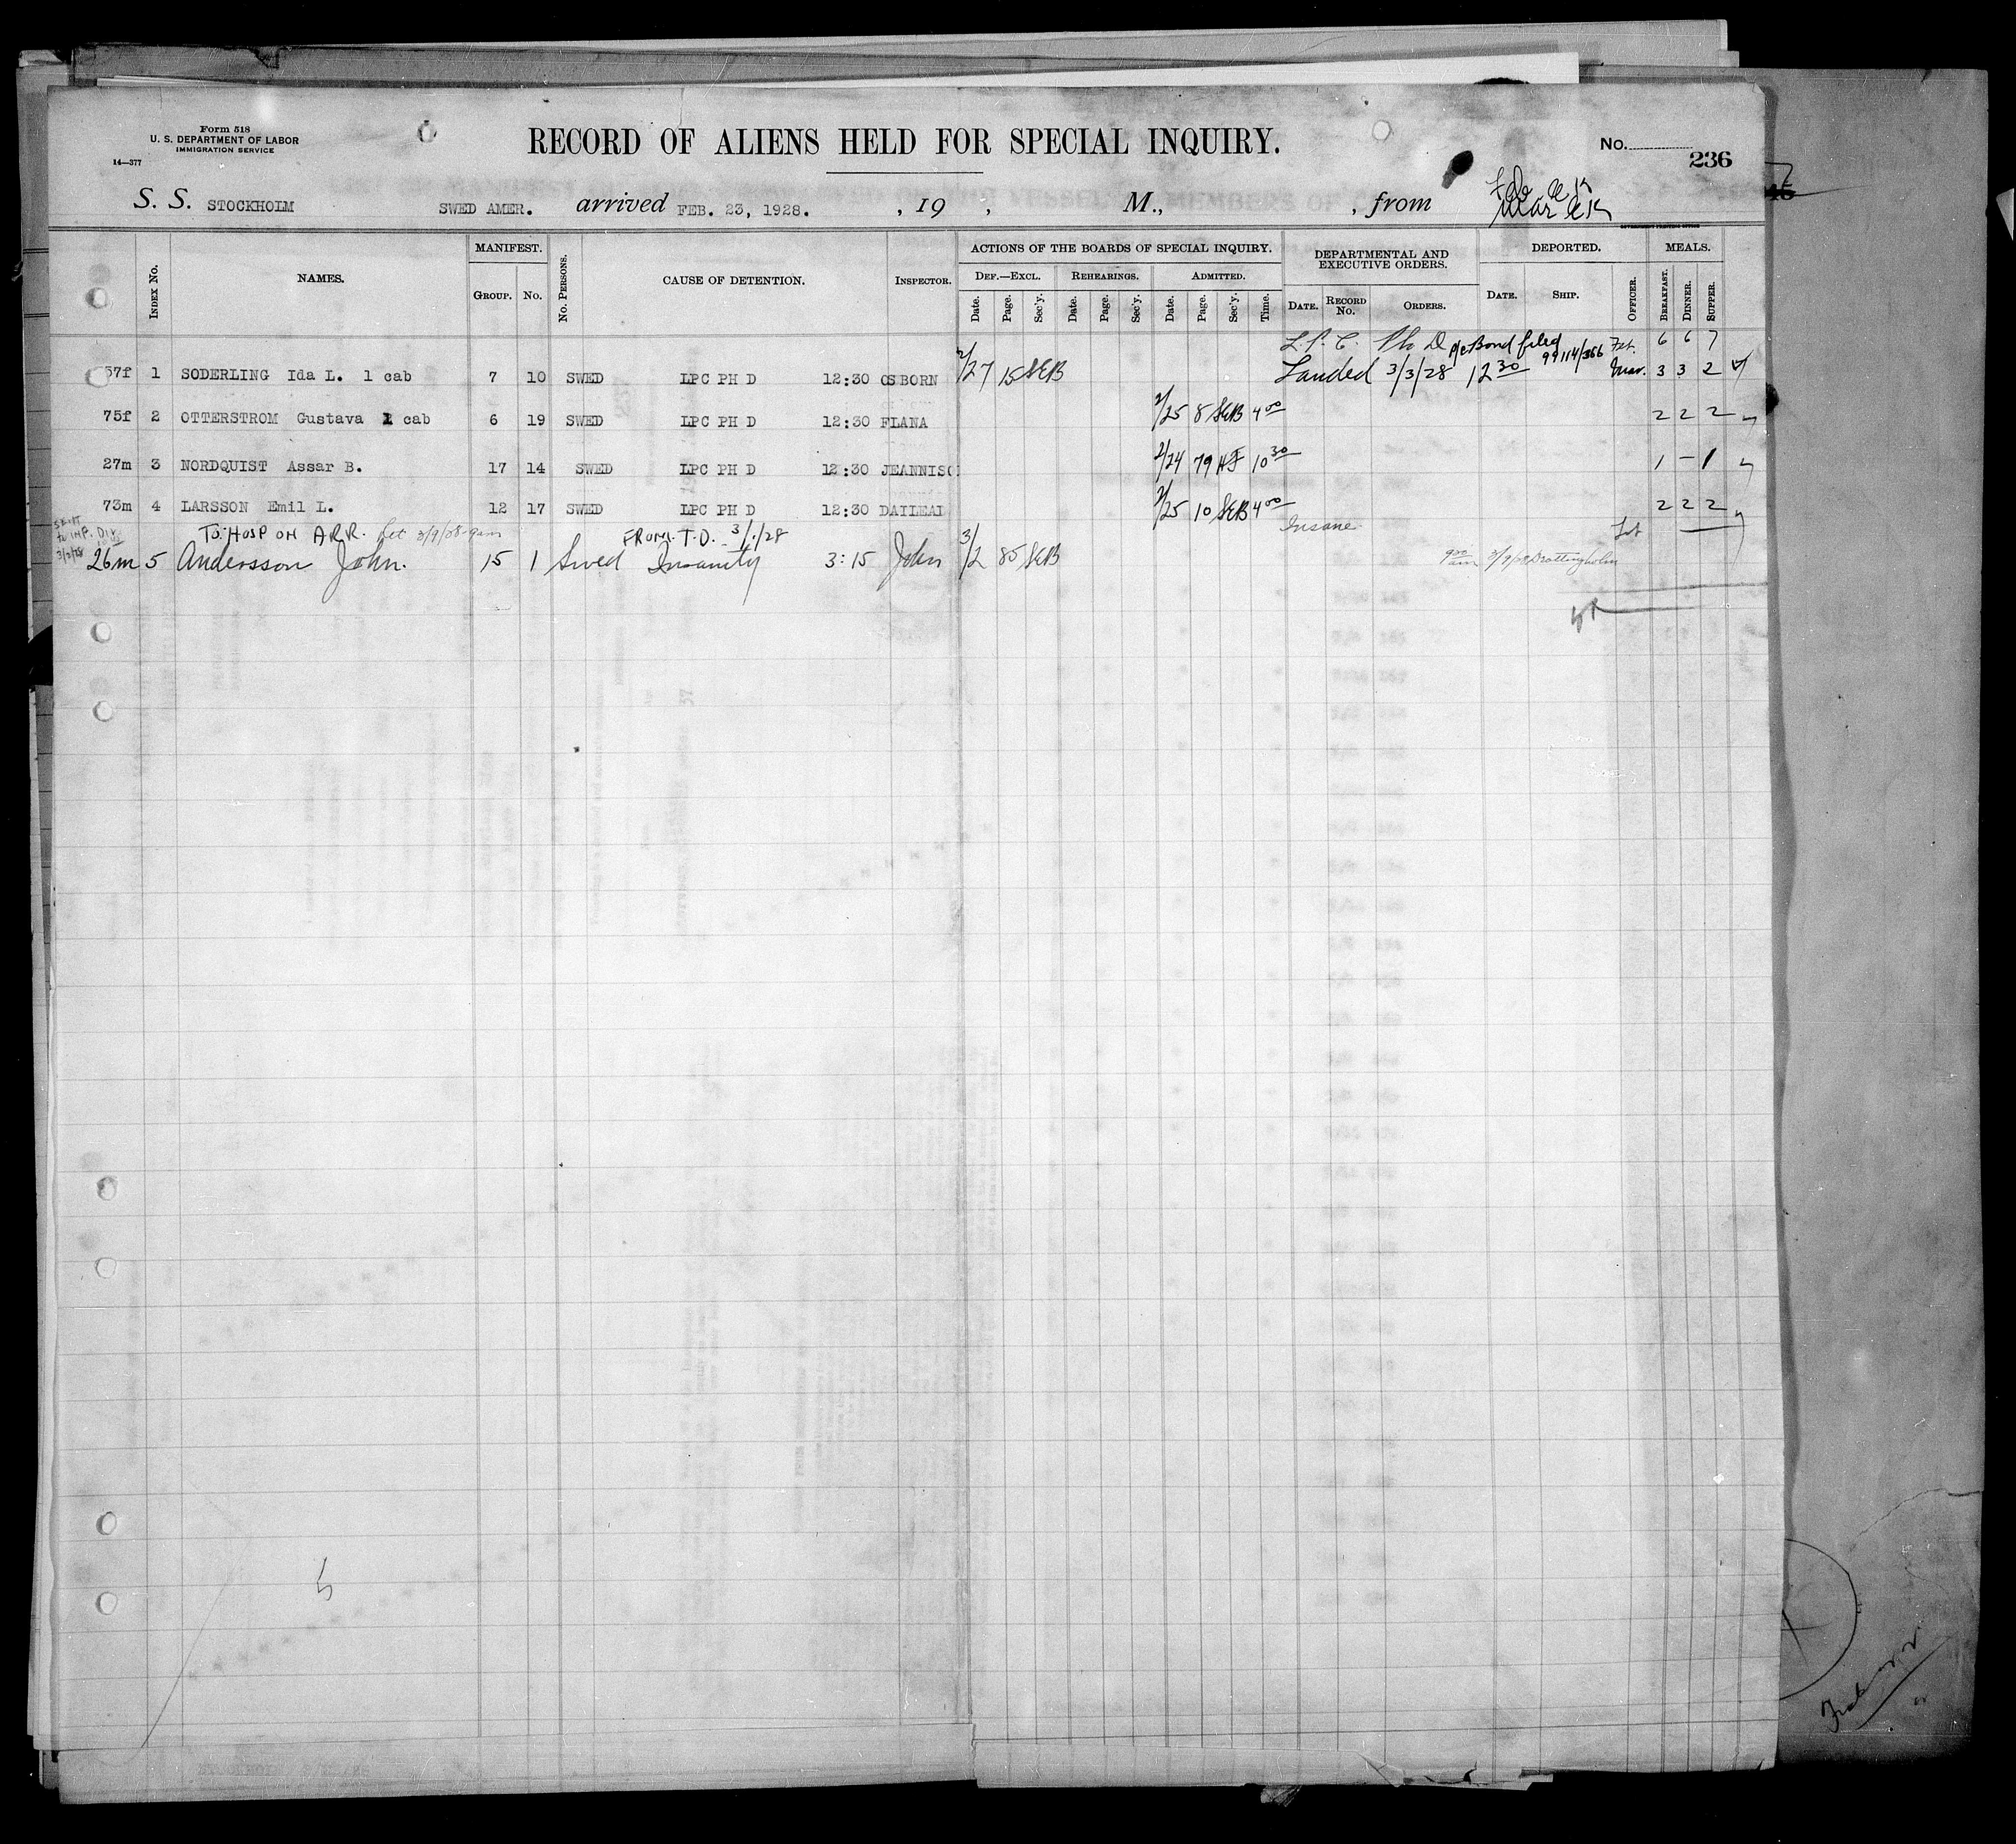 Form 518
U. S. DEPARTMENT OF LABOR
IMMIGRATION SERVICE
14—377
RECORD OF ALIENS HELD FOR SPECIAL INQUIRY.
No. 236
S. S. STOCKHOLM SWED AMER. arrived FEB. 23, 1928. , 19 , M., , from
Index No. NAMES. MANIFEST. Group. No. No. Persons. CAUSE OF DETENTION. Inspector. ACTIONS OF THE BOARDS OF SPECIAL INQUIRY. DEPARTMENTAL AND EXECUTIVE ORDERS. DEPORTED. MEALS.
Def.—Excl. Rehearings. Admitted.
Date. Page. Sec'y. Date. Page. Sec'y. Date. Page. Sec'y. Time. Date. Record No. Orders. Date. Ship. Officer. Breakfast. Dinner. Supper.
L.P.C. Ph D Bond filed 99114/366 Feb. 6 6 7
57f 1 SODERLING Ida L. 1 cab 7 10 SWED LPC PH D 12:30 OSBORN 2/27 15 SEB Landed 3/3/28 12 30 Mar. 3 3 2
75f 2 OTTERSTROM Gustava 1 cab 6 19 SWED LPC PH D 12:30 FLANA 2/25 8 SEB 4 00 2 2 2
27m 3 NORDQUIST Assar B. 17 14 SWED LPC PH D 12:30 JEANNISO 2/24 79 HJ 10 30 1 – 1
73m 4 LARSSON Emil L. 12 17 SWED LPC PH D 12:30 DAILEAL 2/25 10 SEB 4 00 2 2 2
TO HOSP ON ARR. 3/9/28 9am FROM T.D. 3/1/28 Insane
26m 5 Andersson John. 15 1 Swed Insanity 3:15 John 3/2 85 SEB 9 00 am 3/9/28 Drottningholm
5